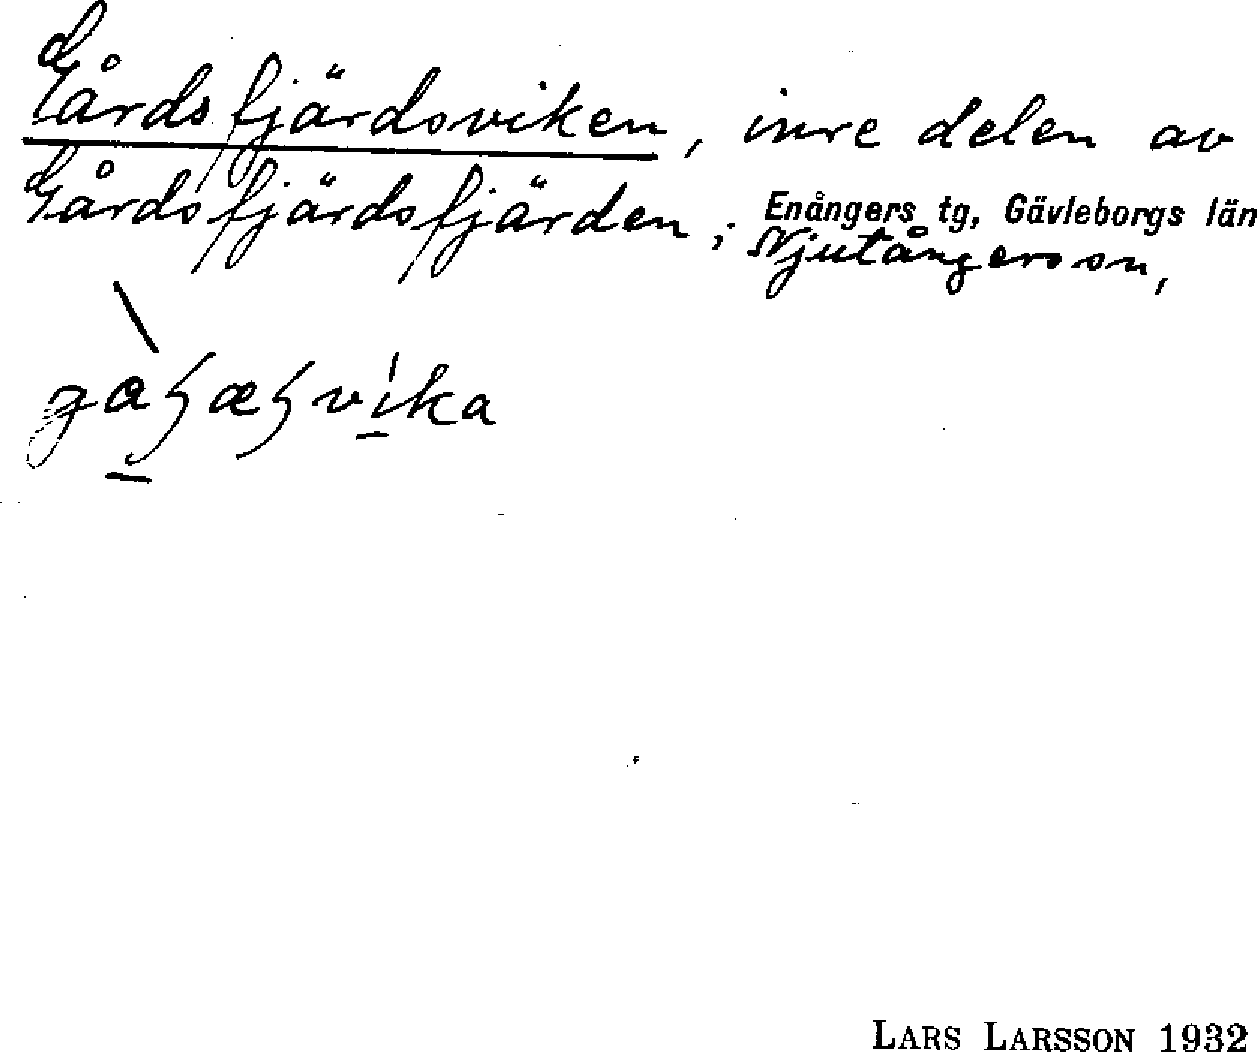 Gårdsfjärdsviken, inre delen av
Gårdsfjärdsfjärden; Enångers tg, Gävleborgs län
Njutångers sn,
LARS LARSSON 1932